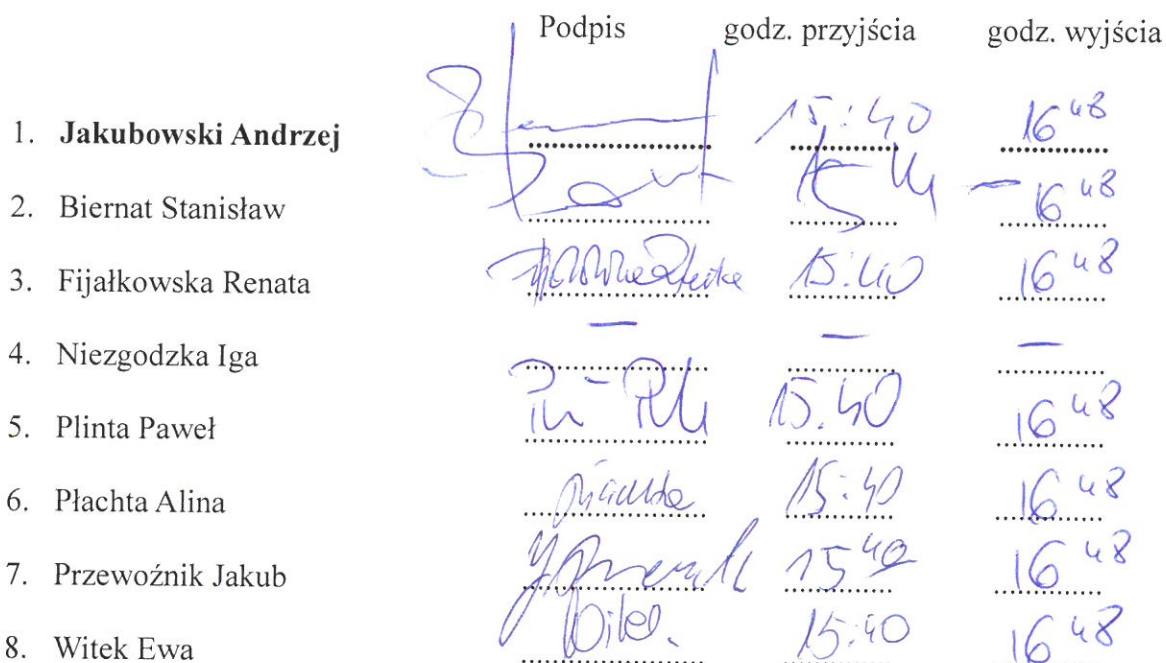 Podpis godz. przyjścia godz. wyjścia
1. Jakubowski Andrzej 15:40 16 48
2. Biernat Stanisław 16 48
3. Fijałkowska Renata 15:40 16 48
4. Niezgodzka Iga — — —
5. Plinta Paweł 15.40 16 48
6. Płachta Alina Płachta 15:40 16 48
7. Przewoźnik Jakub 15 40 16 48
8. Witek Ewa Witek. 15:40 16 48